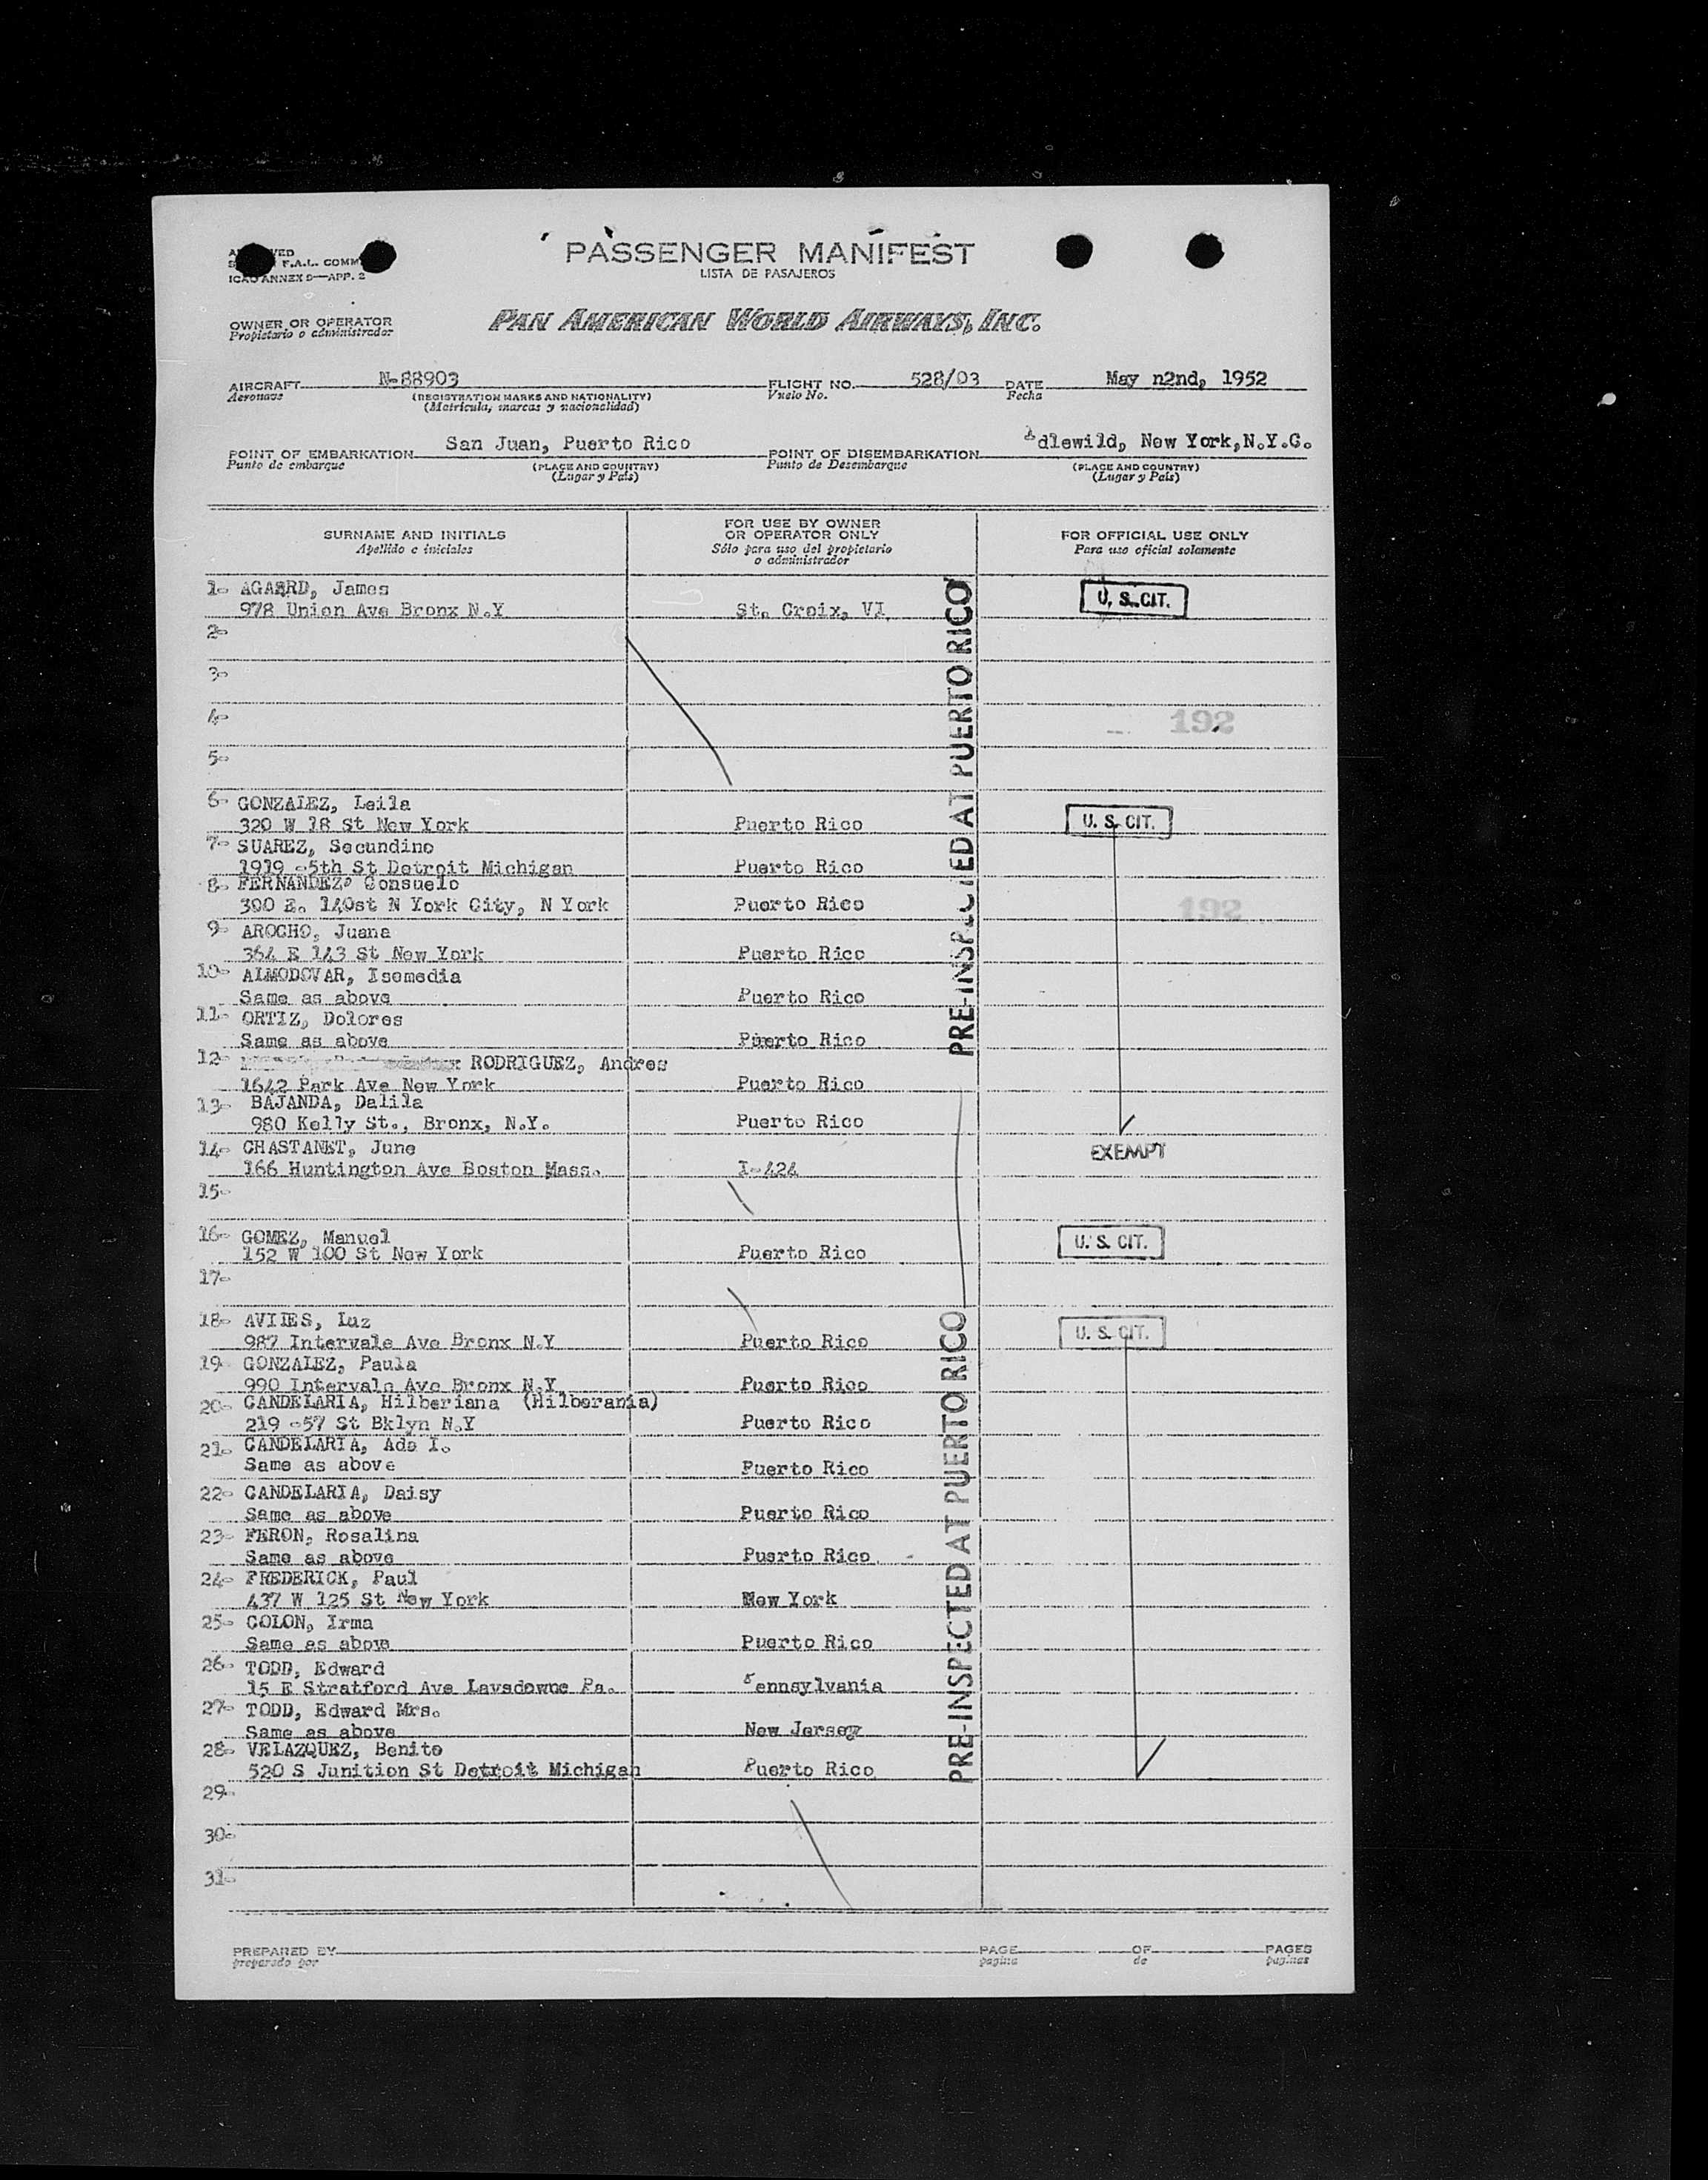 PASSENGER MANIFEST
LISTA DE PASAJEROS
F.A.L. COMM
ICAO ANNEX 9—APP. 2
OWNER OR OPERATOR
Propietario o administrador
PAN AMERICAN WORLD AIRWAYS, INC.
AIRCRAFT N-88903 FLIGHT NO. 528/03 DATE May n2nd, 1952
Aeronave (REGISTRATION MARKS AND NATIONALITY) Vuelo No. Fecha
(Matricula, marcas y nacionalidad)
POINT OF EMBARKATION San Juan, Puerto Rico POINT OF DISEMBARKATION Idlewild, New York,N.Y.C.
Punto de embarque (PLACE AND COUNTRY) Punto de Desembarque (PLACE AND COUNTRY)
(Lugar y País) (Lugar y País)
SURNAME AND INITIALS FOR USE BY OWNER OR OPERATOR ONLY FOR OFFICIAL USE ONLY
Apellido e iniciales Sólo para uso del propietario o administrador Para uso oficial solamente
1- AGAARD, James U. S. CIT.
978 Union Ave Bronx N.Y St. Croix, VI
2-
3-
4- 192
5-
6- GONZALEZ, Leila
320 W 18 St New York Puerto Rico U. S. CIT.
7- SUAREZ, Secundino
1919 -5th St Detroit Michigan Puerto Rico
8- FERNANDEZ, Consuelo
390 E. 140st N York City, N York Puerto Rico 192
9- AROCHO, Juana
364 E 143 St New York Puerto Rico
10- ALMODOVAR, Isomedia
Same as above Puerto Rico
11- ORTIZ, Dolores
Same as above Puerto Rico
12- RODRIGUEZ, Andres
1642 Park Ave New York Puerto Rico
13- BAJANDA, Dalila
980 Kelly St., Bronx, N.Y. Puerto Rico
14- CHASTANET, June EXEMPT
166 Huntington Ave Boston Mass. I-424
15-
16- GOMEZ, Manuel
152 W 100 St New York Puerto Rico U. S. CIT.
17-
18- AVILES, Luz
987 Intervale Ave Bronx N.Y Puerto Rico U. S. CIT.
19- GONZALEZ, Paula
990 Intervale Ave Bronx N.Y Puerto Rico
20- CANDELARIA, Hilberiana (Hilberania)
219 -57 St Bklyn N.Y Puerto Rico
21- CANDELARIA, Ada I.
Same as above Puerto Rico
22- CANDELARIA, Daisy
Same as above Puerto Rico
23- FERON, Rosalina
Same as above Puerto Rico
24- FREDERICK, Paul
437 W 125 St New York New York
25- COLON, Irma
Same as above Puerto Rico
26- TODD, Edward
15 E Stratford Ave Lavsdowne Pa. Pennsylvania
27- TODD, Edward Mrs.
Same as above New Jersey
28- VELAZQUEZ, Benito
520 S Junition St Detroit Michigan Puerto Rico
29-
30-
31-
PRE-INSPECTED AT PUERTO RICO
PRE-INSPECTED AT PUERTO RICO
PREPARED BY PAGE OF PAGES
preparado por pagina de paginas